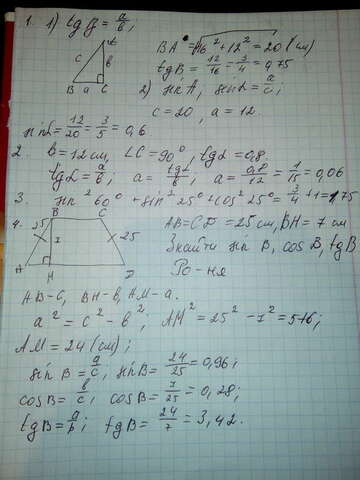 1. 1) tg β = a/b;
A
c b
B a C
BA = √16² + 12² = 20 (см)
tg B = 12/16 = 3/4 = 0,75
2) sin A, sin α = a/c;
c = 20, a = 12.
sin α = 12/20 = 3/5 = 0,6
2. b = 12 см, ∠C = 90°, tg α = 0,8
tg α = a/b, a = tg α/b, a = 0,8/12 = 1/15 = 0,06
3. sin² 60° + sin² 25° + cos² 25° = 3/4 + 1 = 1,75
4. B C
25 7 25
A H D
AB = CD = 25 см, BH = 7 см
Знайти sin B, cos B, tg B
Ро-ня
AB - c, BH - b, AM - a.
a² = c² - b², AM² = 25² - 7² = 576;
AM = 24 (см);
sin B = a/c, sin B = 24/25 = 0,96;
cos B = b/c, cos B = 7/25 = 0,28;
tg B = a/b; tg B = 24/7 = 3,42.